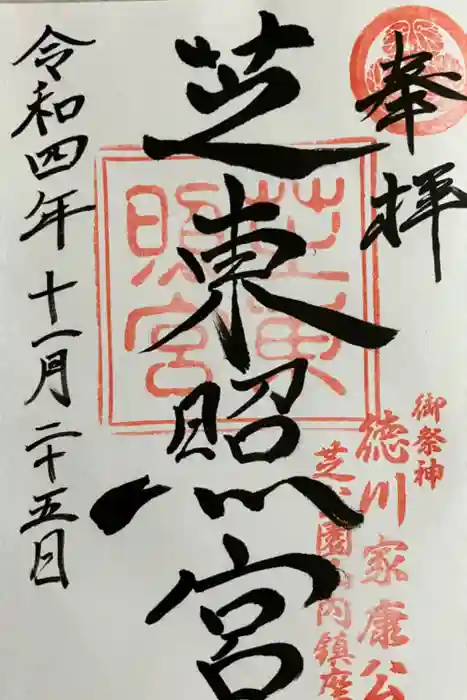 奉拝
御祭神
徳川家康公
芝公園内鎮座
芝東照宮
芝東照宮
令和四年十一月二十五日